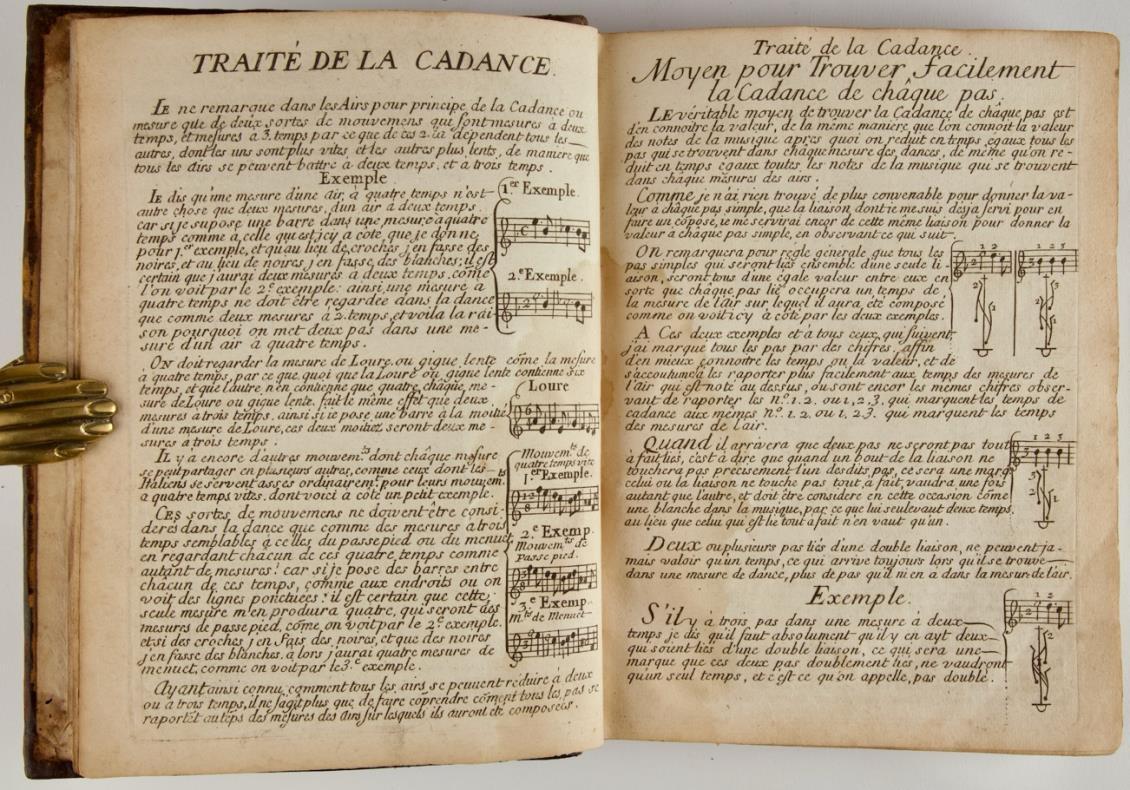 TRAITÉ DE LA CADANCE.
JE ne remarque dans les Airs pour principe de la Cadance ou
mesure que de deux sortes de mouvemens qui sont mesures à deux
temps, et mesures à 3. temps par ce que de ces 2. la dépendent tous les
autres, dont les uns sont plus vites, et les autres plus lents, de maniere que
tous les airs se peuvent battre à deux temps, et à trois temps.
Exemple
JE dis qu'une mesure d'une air, à quatre temps n'est
autre chose que deux mesures, d'un air à deux temps.
car si je supose une barre dans une mesure a quatre
temps comme à celle qui est icy à côté, que je donne
pour 1.er exemple, et qu'au lieu de croches j'en fasse des
noires, et au lieu de noires, j'en fasse, des blanches; il est
certain que j'aurai deux mesures a deux temps. come
l'on voit par le 2.e exemple: ainsi une mesure à
quatre temps ne doit être regardée dans la dance
que comme deux mesures à 2. temps, et voila la rai-
son pourquoi on met deux pas dans une me-
sure d'un air a quatre temps.
1.er Exemple.
2.e Exemple.
ON doit regarder la mesure de Loure, ou gigue lente come la mesure
à quatre temps, par ce que quoi que la Loure ou gigue lente contienne six
temps, et que l'autre, n'en contienne que quatre, chaque, me-
sure de Loure ou gigue lente, fait le même effet que deux
mesures a trois temps, ainsi si je pose une barre à la moitié
d'une mesure de Loure, ces deux moitiez seront deux me-
sures a trois temps.
Loure
IL y a encore d'autres mouvem.ts dont chaque mesure
se peut partager en plusieurs autres, comme ceux dont les
Italiens se servent asses ordinairem.t pour leurs mouvem.ts
a quatre temps vites. dont voici à côté un petit exemple.
Mouvem.ts de
quatre temps vite
1.er Exemple.
CES sortes, de mouvemens ne doivent être consi-
derés dans la dance que comme des mesures a trois
temps semblables à celles du passepied ou du menuet
en regardant chacun de ces quatre temps comme
autant de mesures! car si je pose des barres entre
chacun de ces temps, comme aux endroits ou on
voit des lignes ponctuées: il est certain que cette
seule mesure m'en produira quatre, qui seront des
mesures de passepied, come on voit par le 2.e exemple.
et si des croches j'en fais des noires, et que des noires
j'en fasse des blanches, à lors j'aurai quatre mesures de
menuet, comme on voit par le 3.e exemple.
2.e Exemp.
Mouvem.ts de
Passe pied.
3.e Exemp.
m.ts de Menuet
Ayant ainsi connu comment tous les airs se peuvent réduire à deux
ou à trois temps, il ne s'agit plus que de faire coprendre coment tous les pas se
raportet au teps des mesures des airs sur lesquels ils auront été composées.
Traité de la Cadance.
Moyen pour Trouver facilement
la Cadance de châque pas.
LE véritable moyen de trouver la Cadance de châque pas est
d'en connoitre la valeur, de la même maniere que l'on connoit la valeur
des notes de la musique apres quoi on reduit en temps egaux tous les
pas qui se trouvent dans châque mesure des, dances, de même qu'on re-
duit en temps egaux toutes les notes de la musique qui se trouvent
dans châque mesures des airs.
Comme je n'ai rien trouvé de plus convenable pour donner la va-
leur à châque pas simple, que la liaison, dont je me suis desja servi pour en
faire un coposé, je me servirai encor de cette même liaison pour donner la
valeur à châque pas simple, en observant ce qui suit.
ON remarquera pour règle génerale que tous les
pas simples qui seront liés ensemble d'une seule li-
aison, seront tous d'une égale valeur entre eux en
sorte que châque pas lié occupera un temps de
la mesure de l'air sur lequel il aura, été composé
comme on voit icy à côté par les deux exemples.
1 2
1 2 3
A Ces deux exemples et à tous ceux, qui suivent,
j'ai marqué tous les pas par des chifres, affin
d'en mieux connoitre les temps ou la valeur, et de
s'accoutumer à les raporter plus facilement aux temps des mesures de
l'air qui est noté au dessus, ou sont encor les memes chifres obser-
vant de raporter les n.os 1. 2. ou 1, 2, 3, qui marquent les temps de
cadance aux mêmes n.os 1. 2. ou 1, 2 3. qui marquent les temps
des mesures de l'air.
Quand il arrivera que deux pas ne seront pas tout
à fait liés, c'est à dire que quand un bout de la liaison ne
touchera pas precisement l'un desdits pas, ce sera une marq.
celui ou la liaison ne touche pas tout à fait, vaudra une fois
autant que l'autre, et doit être considere en cette occasion cöme
une blanche dans la musique, par ce que lui seul evaut deux temps
au lieu que celui qui est lié tout a fait n'en vaut qu'un.
1 2 3
Deux ou plusieurs pas liés d'une double liaison, ne peuvent ja-
mais valoir qu'un temps, ce qui arrive toujours lors qu'il se trouve
dans une mesure de dance, plus de pas qu'il n'i en à dans la mesur. de l'air.
Exemple.
S'il y à trois pas dans une mesure à deux
temps je dis qu'il faut absolument qu'il y en ayt deux
qui soient liés d'une double liaison, ce qui sera une
marque que ces deux pas doublement liés, ne vaudront
qu'un seul temps, et c'est ce qu'on appelle, pas double.
1 2